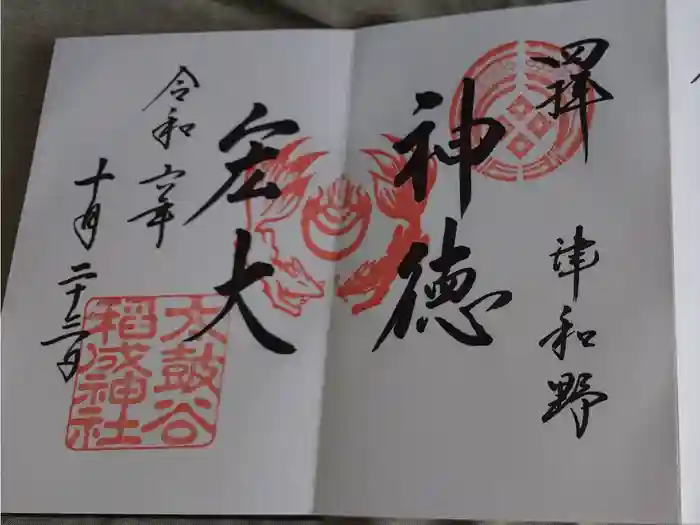 拝
津和野
神徳
宏大
令和六年
十月二十三日
太鼓谷
稲成神社